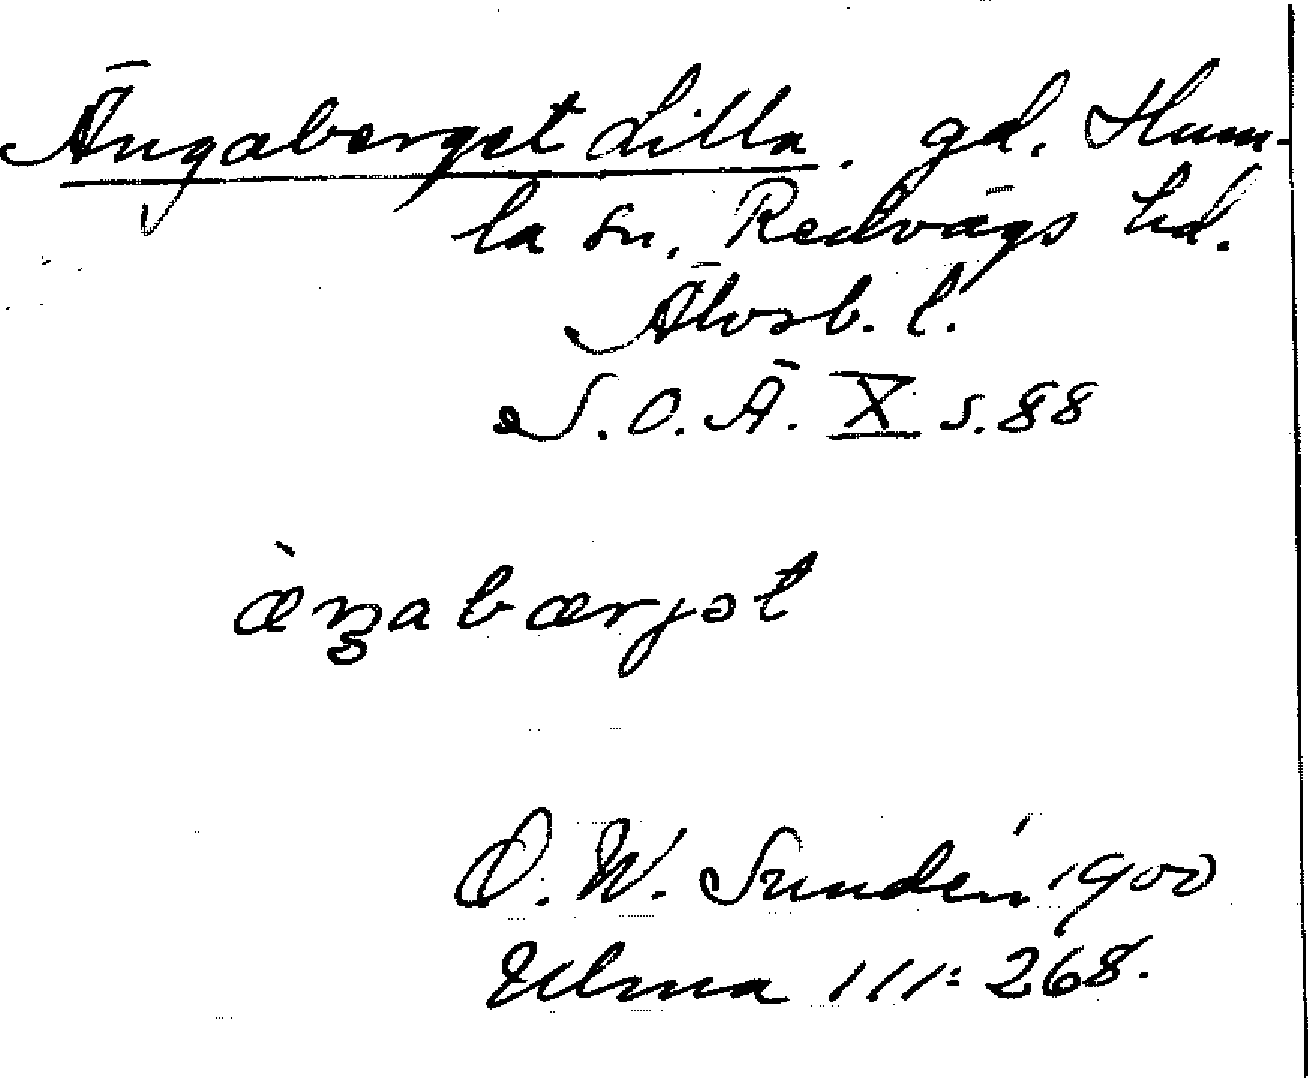 Ängaberget Lilla. gd. Hum-
la sn, Redvägs hd.
Älvsb. l.
S.O.Ä. X s. 88
æ̀ŋabærjət
D. W. Sundén 1900
Ulma 111: 268.